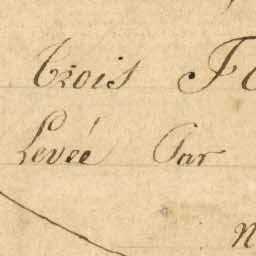 trois
Levée Par